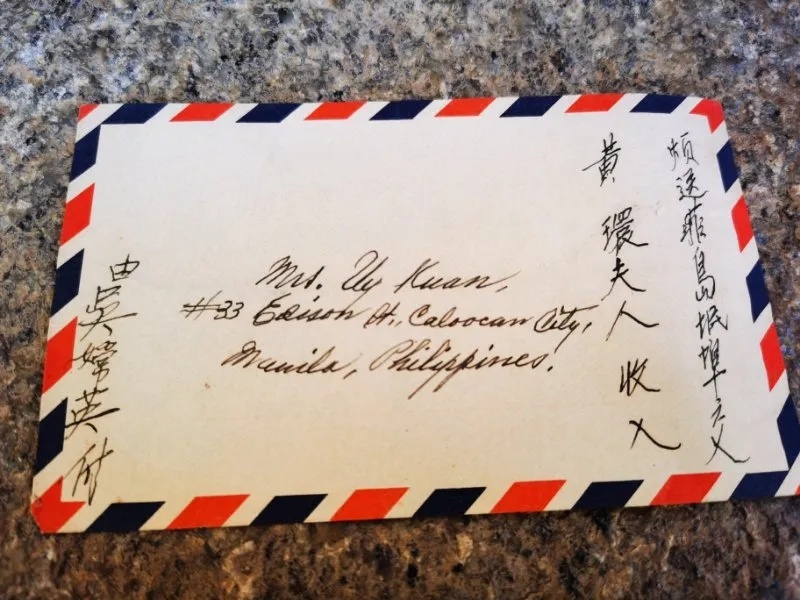 煩送菲島岷埠交
黃環夫人收入
Mrs. Uy Kuan,
#33 Edison St., Caloocan City,
Manila, Philippines.
由吳嫦英附